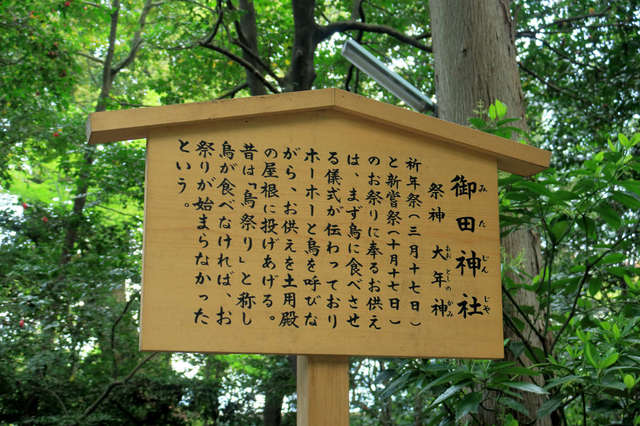 御田神社
みたじんじゃ
祭神 大年神
おおとしのかみ
祈年祭(三月十七日)
と新嘗祭(十月十七日)
のお祭りに奉るお供え
は、まず烏に食べさせ
る儀式が伝わっており
ホーホーと烏を呼びな
がら、お供えを土用殿
の屋根に投げあげる。
昔は「烏祭り」と称し
烏が食べなければ、お
祭りが始まらなかった
という。